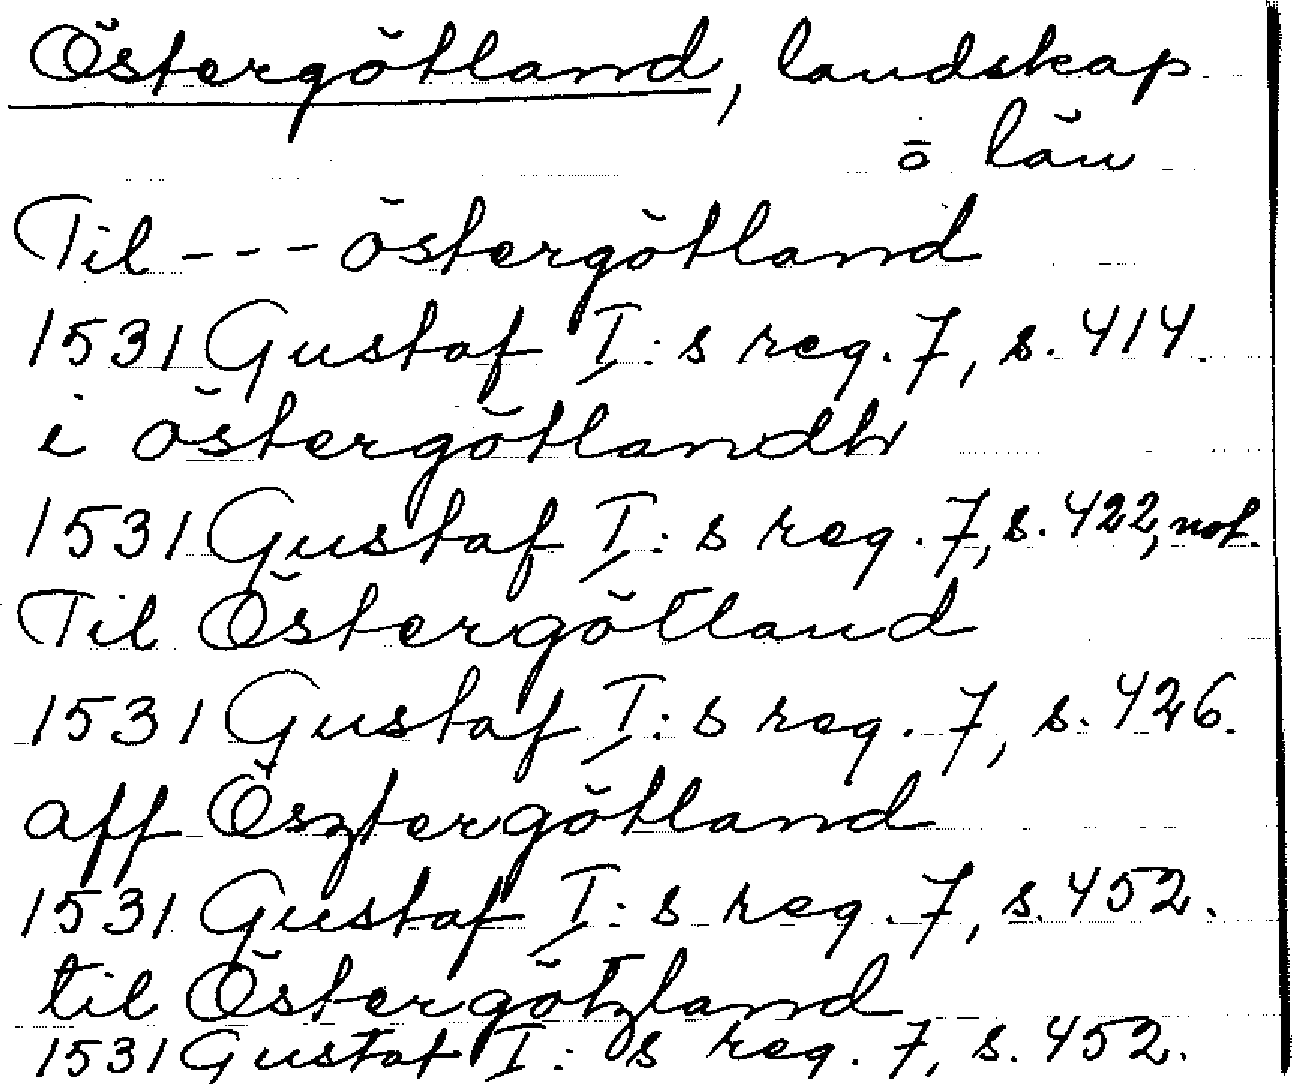 Östergötland, landskap
o län
Til --- östergötland
1531 Gustaf I:s reg. 7, s. 414.
i östergötlandh
1531 Gustaf I:s reg. 7, s. 422, not.
Til Östergötland
1531 Gustaf I:s reg. 7, s. 426.
aff Ösztergötland
1531 Gustaf I:s reg. 7, s. 452.
til Östergötzland
1531 Gustaf I:s reg. 7, s. 452.